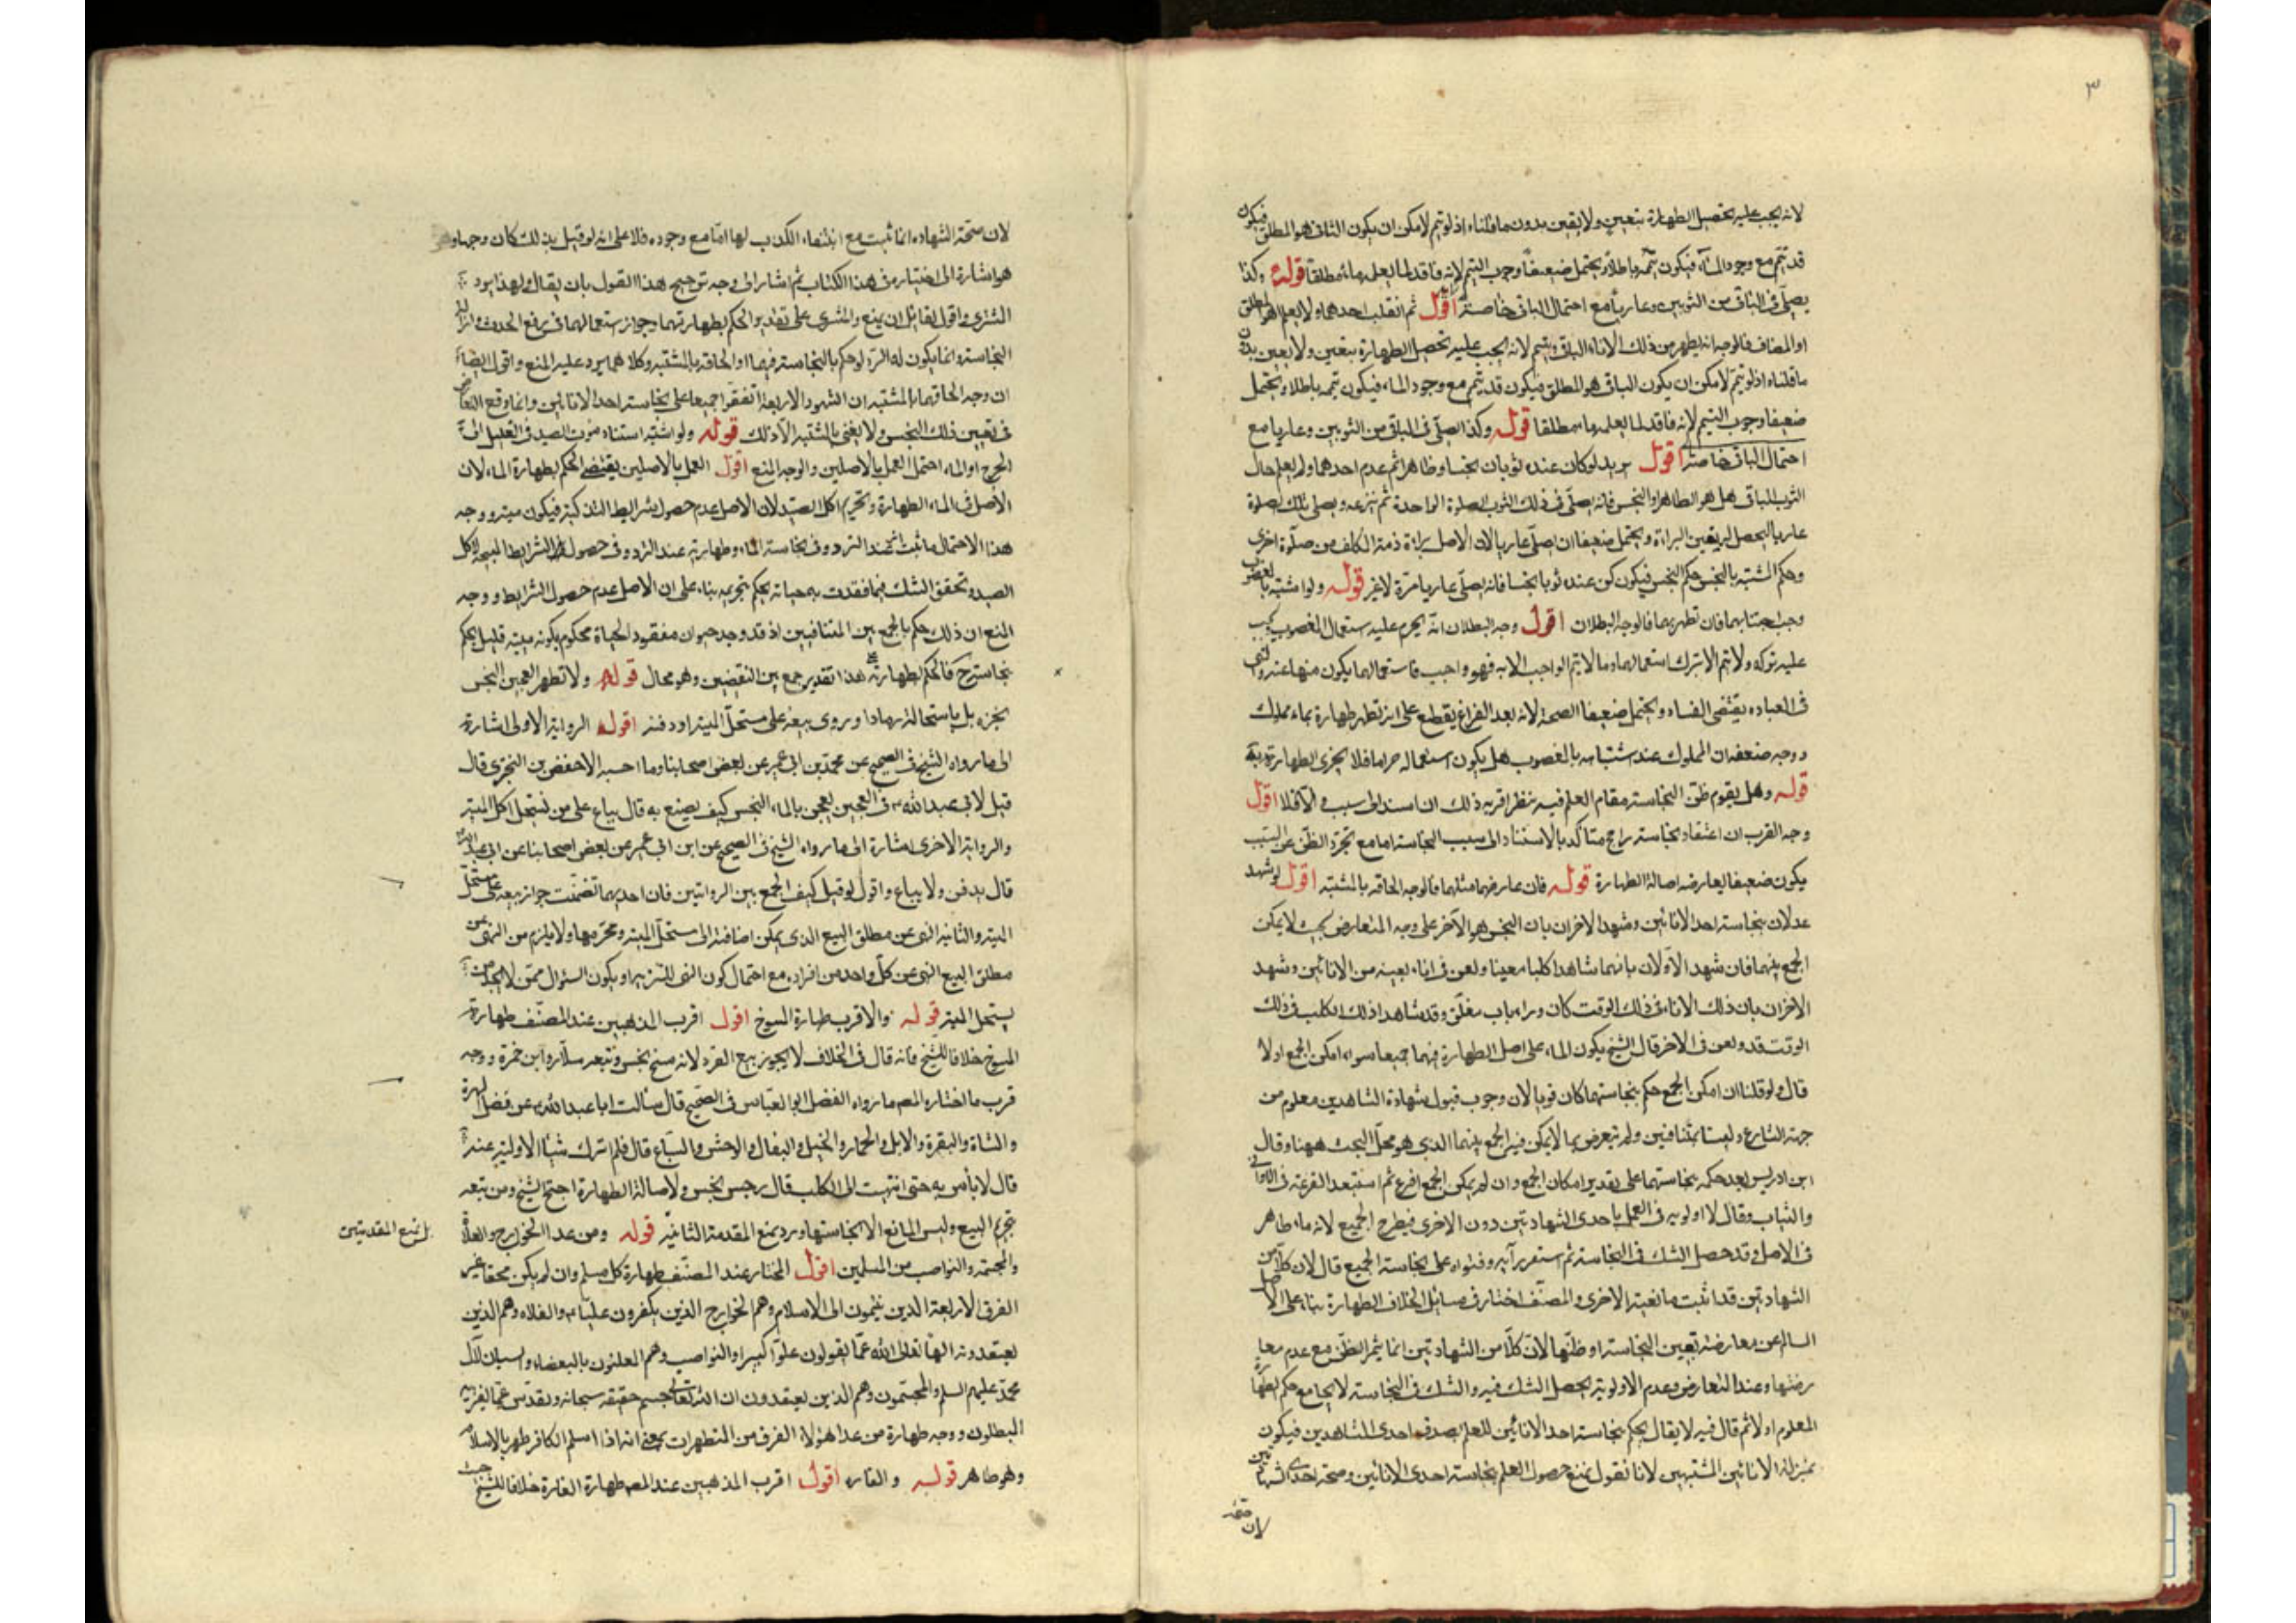 ٣
لانه يجب عليه تحصيل الطهارة بيقين ولا يقين بدون ما قلناه اذ لو تيمم لامكن ان يكون الثاني هو المطلق فيكون
قد تيمم مع وجود الماء فيكون تيممه باطلا ويحتمل ضعيفا وجوب التيمم لانه فاقد لما يعلمه ماء مطلقا قوله وكذا
يصلي في الباقي من الثوبين وعاريا مع احتمال الباقي خاصة اقول ثم انقلب احدهما ولا يعلم اهو المطلق
او المضاف فالوجه انه يطهر من ذلك الاناء الباقي ويتيمم لانه يجب عليه تحصيل الطهارة بيقين ولا يقين بدون
ما قلناه اذ لو تيمم لامكن ان يكون الباقي هو المطلق فيكون قد تيمم مع وجود الماء فيكون تيممه باطلا ويحتمل
ضعيفا وجوب التيمم لانه فاقد لما يعلمه ماء مطلقا قوله وكذا يصلي في الباقي من الثوبين وعاريا مع
احتمال الباقي خاصة اقول يريد لو كان عنده ثوبان نجسا وطاهرا ثم عدم احدهما ولم يعلم حال
الثوب الباقي هل هو الطاهر او النجس فانه يصلي في ذلك الثوب الصلوة الواحدة ثم ينزعه ويصلي تلك الصلوة
عاريا ليحصل له يقين البراءة ويحتمل ضعيفا ان يصلي عاريا لان الاصل براءة ذمة المكلف من صلوة اخرى
وحكم المشتبه بالنجس حكم النجس فيكون كمن عنده ثوبا نجسا فانه يصلي عاريا مرة لا غير قوله ولو اشتبه بالمغصوب
وجب اجتنابهما فان تطهر بهما فالوجه البطلان اقول وجه البطلان انه يحرم عليه استعمال المغصوب فيجب
عليه تركه ولا يتم الا بترك استعمالهما وما لا يتم الواجب الا به فهو واجب فاستعمالهما يكون منهيا عنه والنهي
في العبادة يقتضي الفساد ويحتمل ضعيفا الصحة لانه بعد الفراغ يقطع على انه تطهر طهارة بماء مملوك
ووجه ضعفه ان المملوك عند اشتباهه بالمغصوب هل يكون استعماله حراما فلا يجزى الطهارة به
قوله وهل يقوم ظن النجاسة مقام العلم فيه نظر اقربه ذلك ان استند الى سبب والا فلا اقول
وجه القرب ان اعتقاد نجاسته راجح متاكد بالاستناد الى سبب النجاسة اما مع تجرد الظن عن السبب
يكون ضعيفا لمعارضه اصالة الطهارة قوله فان عارضهما مثلهما فالوجه الحاقه بالمشتبه اقول لو شهد
عدلان بنجاسة احد الانائين وشهد الاخران بان النجس هو الآخر على وجه المتعارض بحيث لا يمكن
الجمع بينهما فان شهد الاولان بانهما شاهدا كلبا معينا ولغ في اناء بعينه من الانائين وشهد
الاخران بان ذلك الاناء في ذلك الوقت كان وراء باب مغلق وقد شاهدا ذلك الكلب في ذلك
الوقت قد ولغ في الاخر قال الشيخ يكون الماء على اصل الطهارة فيهما جميعا سواء امكن الجمع اولا
قال ولو قلنا ان امكن الجمع حكم بنجاستهما كان قويا لان وجوب قبول شهادة الشاهدين معلوم من
جهة الشارع وليستا بمتنافيتين ولم يتعرض بما لا يمكن فيه الجمع بينهما الذي هو محل البحث ههنا وقال
ابن ادريس بعد حكمه بنجاستهما على تقدير امكان الجمع وان لم يمكن الجمع اقرع ثم استبعد القرعة في الاواني
والثياب وقال لا اولوية في العمل باحدى الشهادتين دون الاخرى فيطرح الجميع لانه ماء طاهر
في الاصل وقد حصل الشك في النجاسة ثم استقر رايه وفتواه على نجاسة الجميع قال لان كلا من
الشهادتين قد اثبت ما نفته الاخرى والمصنف اختار في مسائل الخلاف الطهارة بناء على الاصل
السالم عن معارضة تعيين النجاسة او ظنها لان كلا من الشهادتين انما يثمر الظن مع عدم معا
رضتها وعند التعارض وعدم الاولوية يحصل الشك فيه والشك في النجاسة لا يجامع حكم الطهارة
المعلوم اولا ثم قال فيه لا يقال يحكم بنجاسة احد الانائين للعلم بصدق احدى الشاهدين فيكون
بمنزلة الانائين المشتبهين لانا نقول نمنع حصول العلم بنجاسة احدى الانائين وصحة احدى الشهادتين
لان صحة
لان صحة الشهادة انما ثبت مع انتفاء الكذب لها اما مع وجوده فلا على انه لو قيل بذلك كان وجها و
هو اشارة الى اختياره في هذا الكتاب ثم اشار الى وجه ترجيح هذا القول بان يقال ولهذا يرد
المشترى واقول لقائل ان يمنع والمشترى على تقدير الحكم بطهارتهما وجواز استعمالهما في رفع الحدث وازالة
النجاسة وانما يكون له الرد لو حكم بالنجاسة فيهما او الحاقه بالمشتبه وكلاهما يرد عليه المنع واقول ايضا
ان وجه الحاقهما بالمشتبه ان الشهود الاربعة اتفقوا جميعا على نجاسة احد الانائين وانما وقع التعارض
في تعيين ذلك النجس ولا يعني بالمشتبه الا ذلك قوله ولو اشتبه استناد موت الصيد في القليل الى
الجرح او الماء احتمل العمل بالاصلين والوجه المنع اقول العمل بالاصلين يقتضي الحكم بطهارة الماء لان
الاصل في الماء الطهارة وتحريم اكل الصيد لان الاصل عدم حصول شرايط التذكية فيكون ميتة ووجه
هذا الاحتمال ما ثبت عند التردد في نجاسة الماء وطهارته عند التردد في حصول الشرايط المبيحة لاكل
الصيد وتحقق الشك فيما فقدت به حياته يحكم بتحريمه بناء على ان الاصل عدم حصول الشرايط ووجه
المنع ان ذلك حكم بالجمع بين المتنافيين اذ قد وجد حيوان مفقود الحياة محكوم بكونه ميتة قليل يحكم
بنجاسته ح فالحكم بطهارته هذا تقدير جمع بين النقيضين وهو محال قوله ولا تطهر العجين النجس
بخبزه بل باستحالته رمادا وروى بيعه على مستحل الميتة او دفنه اقول الرواية الاولى اشارة
الى ما رواه الشيخ في الصحيح عن محمد بن ابي عمير عن بعض اصحابنا وما احسبه الا حفص بن البختري قال
قيل لابي عبد الله ع في العجين يعجن بالماء النجس كيف يصنع به قال يباع على من يستحل اكل الميتة
والرواية الاخرى اشارة الى ما رواه الشيخ في الصحيح عن ابن ابي عمير عن بعض اصحابنا عن ابي عبد الله
قال يدفن ولا يباع واقول لو قيل كيف الجمع بين الروايتين فان احديهما تضمنت جواز بيعه على مستحل
الميتة والثانية النهي عن مطلق البيع الذي يمكن اضافته الى مستحل الميتة ومحرمها ولا يلزم من النهي عن
مطلق البيع النهي عن كل واحد من افراده مع احتمال كون النهي للتنزيه او يكون السؤال ممن لا يجد من
يستحل الميتة قوله والاقرب طهارة المسوخ اقول اقرب المذهبين عند المصنف طهارة
المسوخ خلافا للشيخ فانه قال في الخلاف لا يجوز بيع القرد لانه مسخ نجس وتبعه سلار وابن حمزة ووجه
قرب ما اختاره المصـ ما رواه الفضل ابو العباس في الصحيح قال سألت ابا عبد الله ع عن فضل الهرة
والشاة والبقرة والابل والحمار والخيل والبغال والوحش والسباع قال فلم اترك شيئا الا وسالته عنه
قال لا باس به حتى انتهيت الى الكلب قال رجس نجس ولاصالة الطهارة احتج الشيخ ومن تبعه
بتحريم البيع وليس المانع الا نجاستها ويرد بمنع المقدمة الثانية قوله ومن عدا الخوارج والغلاة
بل تمنع المقدمتين
والمجسمة والنواصب من المسلمين اقول المختار عند المصنف طهارة كل مسلم وان لم يكن محقا غير
الفرق الاربعة الذين ينتمون الى الاسلام وهم الخوارج الذين يكفرون عليا ع والغلاة وهم الذين
يعتقدونه الها تعالى الله عما يقولون علوا كبيرا والنواصب وهم المعلنون بالبغضاء والسب لآل
محمد عليهم السلم والمجسمون وهم الذين يعتقدون ان الله تعالى جسم حقيقة سبحانه وتقدس عما يفتريه
المبطلون ووجه طهارة من عدا هؤلاء الفرق من المتطهرات بمعنى انه اذا اسلم الكافر طهر بالاسلام
وهو طاهر قوله والفارة اقول اقرب المذهبين عند المصـ طهارة الفارة خلافا للشيخ حيث